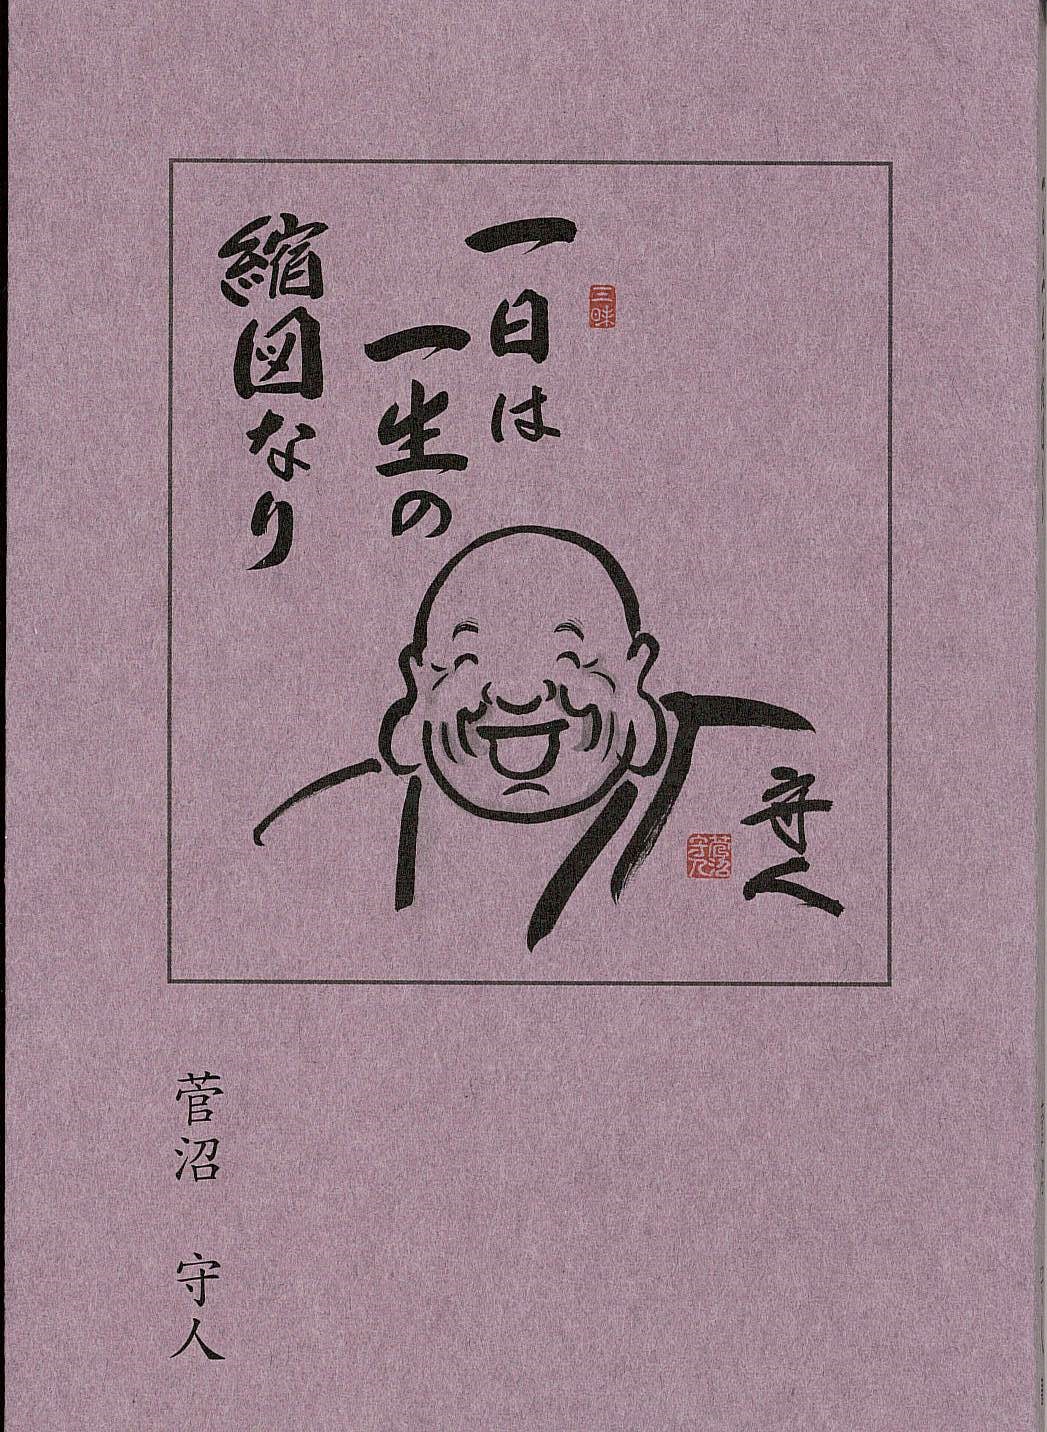 一日は
一生の
縮図なり
三昧
守人
菅沼
守人
菅沼 守人